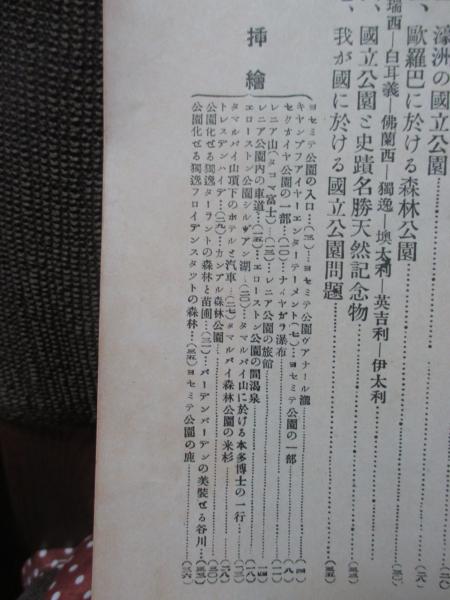 濠洲の國立公園
、歐羅巴に於ける森林公園
瑞西―白耳義―佛蘭西―獨逸―墺太利―英吉利―伊太利
、國立公園と史蹟名勝天然記念物
、我が國に於ける國立公園問題
挿繪
ヨセミテ公園の入口…(三)…ヨセミテ公園ヴアナール瀧
キヤンプフアイヤーエンターテーメント(七)…ヨセミテ公園の一部
セクオイヤ公園の一部…(一〇)…ナイヤガラ瀑布
レニア山(タコマ富士)…(一三)…レニア公園の旅館
レニア公園内の車道…(一五)…エローストン公園の間渴泉
エローストン公園シルヴアン湖…(二〇)…タマルパイ山に於ける本多博士の一行
タマルパイ山頂下のホテルと汽車…(二七)タマルパイ森林公園の米杉
トレスデンハイデ…(二九)…カンアル森林公園
公園化せる獨逸ターラントの森林と苗圃…(三一)…バーデンバーデンの美裝せる谷川
公園化せる獨逸フロイデンスタツトの森林…(三五)ヨセミテ公園の鹿